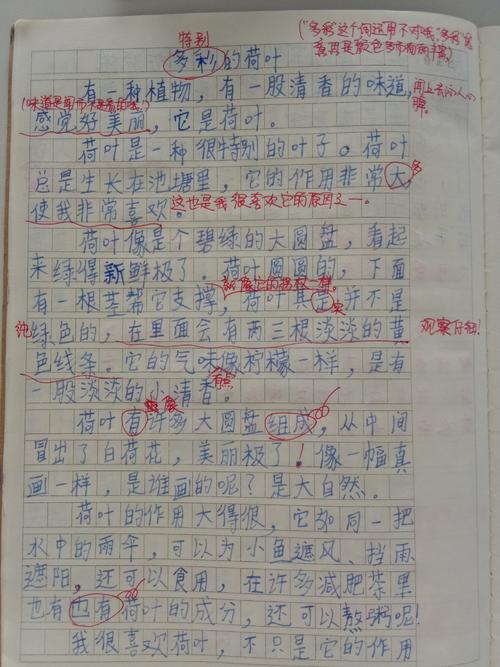 特别
("多彩"这个词运用不对哦,"多彩"意思是颜色多而丰富)
多彩的荷叶
有一种植物，有一股清香的味道，
闻上去沁人心脾。
(味道是闻的不是看的哦！)
感觉好美丽，它是荷叶。
荷叶是一种很特别的叶子。荷叶
总是生长在池塘里，它的作用非常大，多
使我非常喜欢。这也是我很喜欢它的原因之一。
荷叶像是个碧绿的大圆盘，看起
来绿得新鲜极了。荷叶圆圆的，下面
有一根茎帮它支撑，荷叶其定并不是
实
纯绿色的，在里面会有两三根淡淡的黄
观察仔细！
色线条。它的气味像柠檬一样，是有
一股淡淡的小清香。
荷叶有许多大圆盘组成，从中间
冒出了白荷花，美丽极了！像一幅真
画一样，是谁画的呢？是大自然。
荷叶的作用大得很，它如同一把
水中的雨伞，可以为小鱼遮风、挡雨
遮阳，还可以食用，在许多减肥茶里
也有也有荷叶的成分，还可以熬粥呢！
我很喜欢荷叶，不只是它的作用